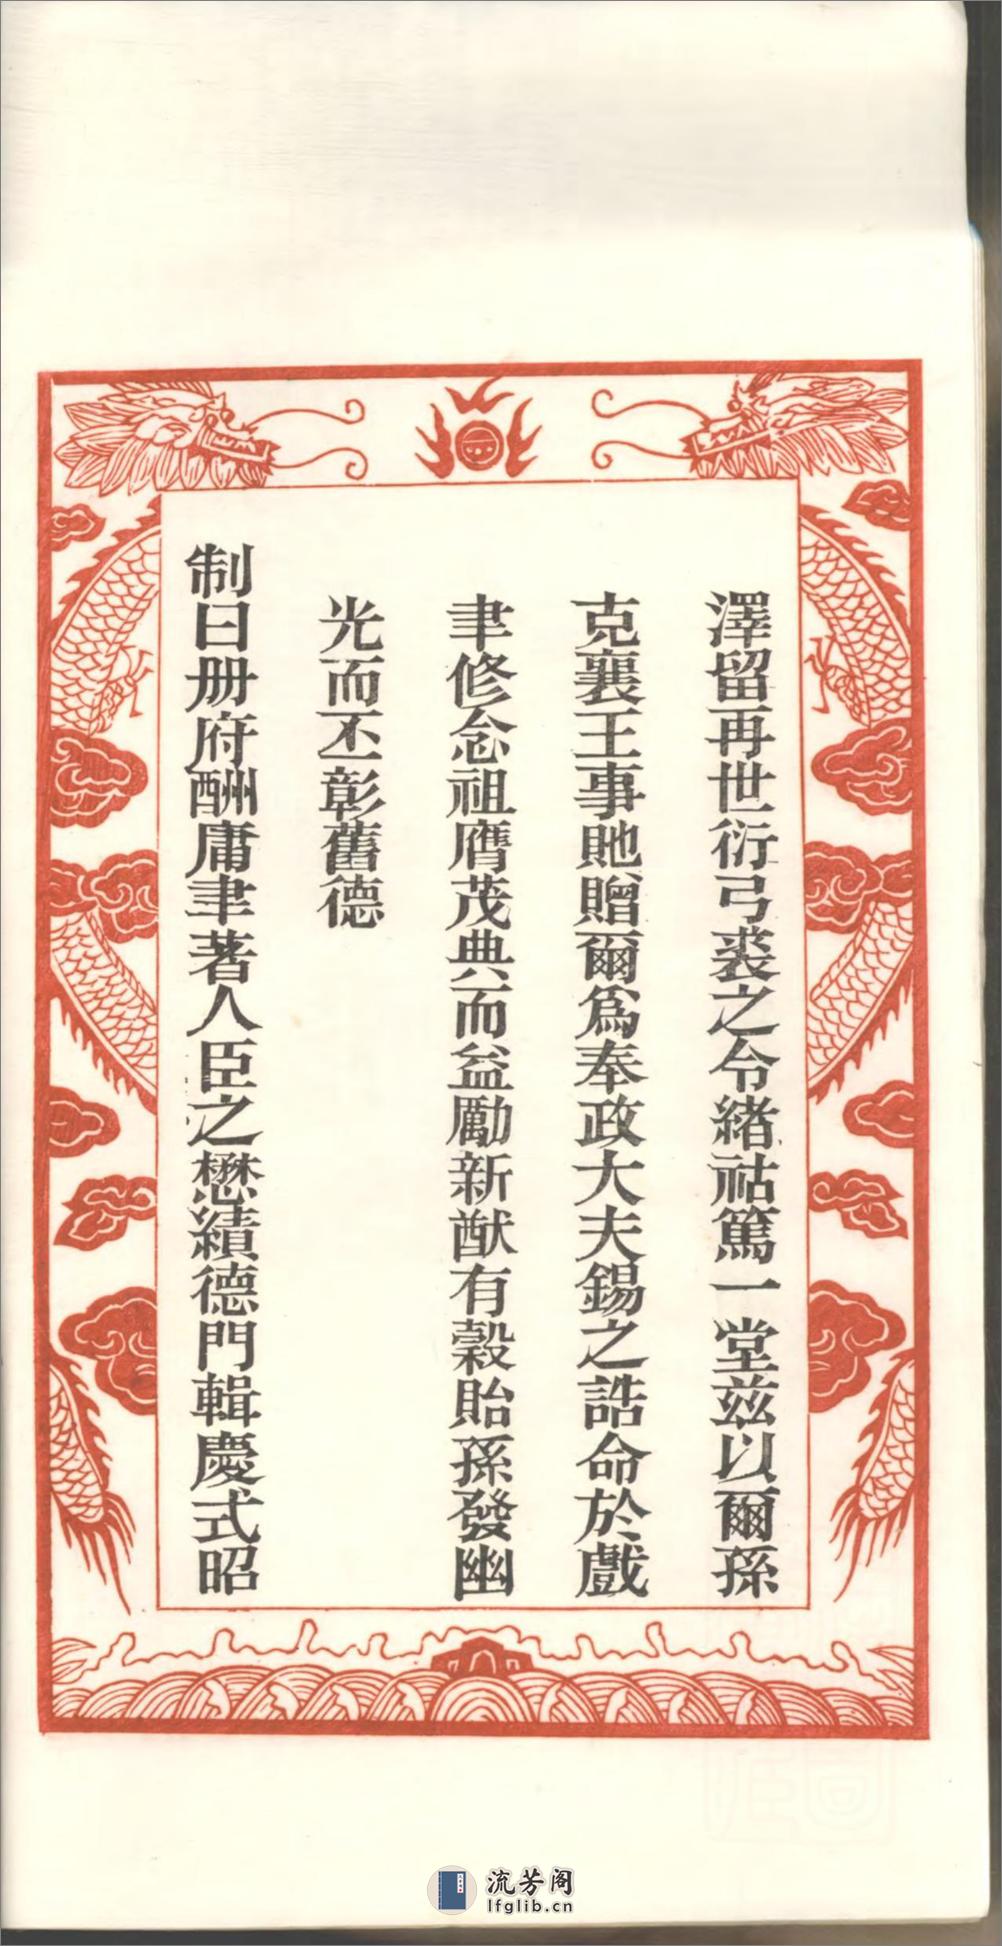 澤留再世衍弓裘之令緒祜篤一堂兹以爾孫
克襄王事貤贈爾爲奉政大夫錫之誥命於戲
聿修念祖膺茂典而益勵新猷有穀貽孫發幽
光而丕彰舊德
制曰册府酬庸聿著人臣之懋績德門輯慶式昭
流芳阁
lfglib.cn